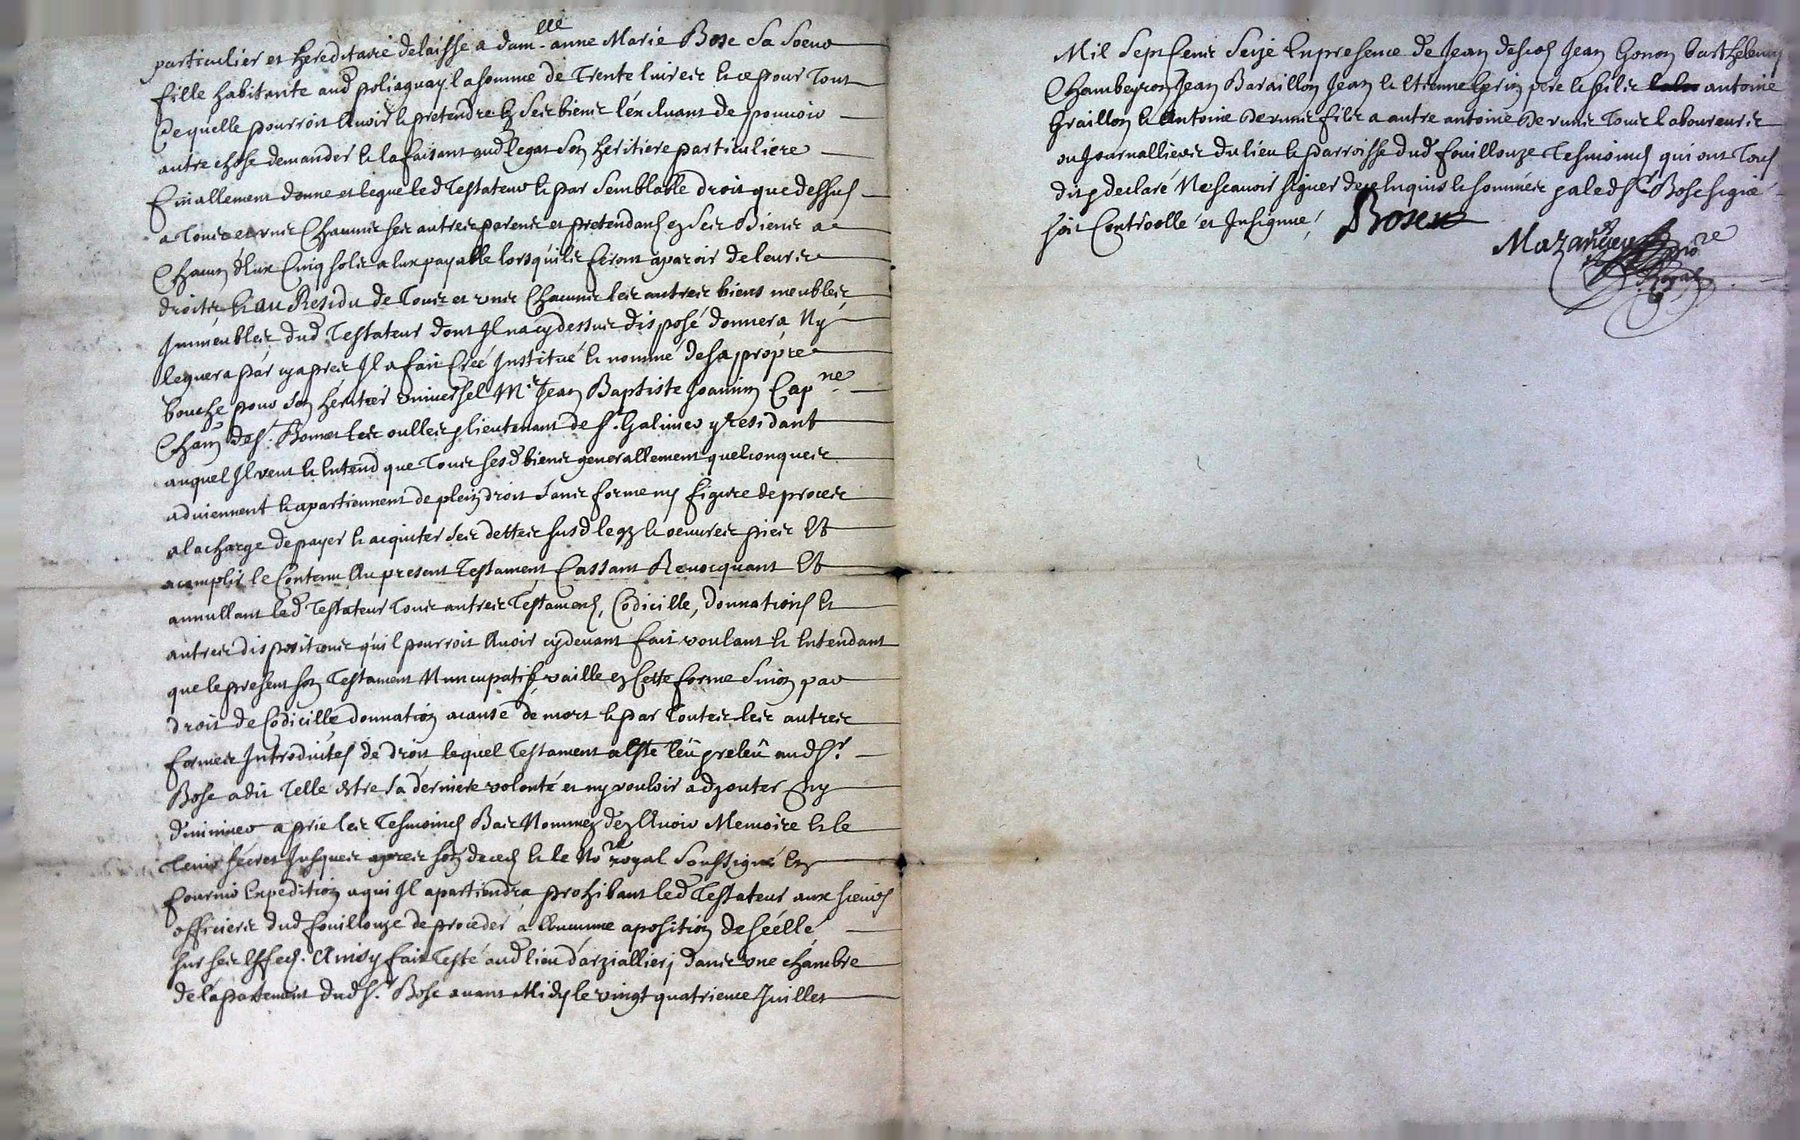 particulier et hereditaire delaisse a dam.lle anne Marie Bose sa soeur
fille habitante aud poliagnay la somme de Trente livres et ce pour Tout
Ce quelle pourroit avoir et pretendre en ses biens lexcluant de pouvoir
autre chose demander et la faisant aud legat son heritiere particuliere
finallement donne et legue led Testateur et par semblable droit que dessus
a Tous et uns Chacuns ses autres parens et pretendans en ses Biens a
Chacun deux Cinq sols a eux payable lorsquils feront aparoir de leurs
droits, et au Residu de Tous et uns Chacuns les autres biens meubles
Immeubles dud Testateur dont Il na cy dessus disposé donnera Ny
leguera par cy apres Il a fait Creé Institué et nommé de sa propre
bouche pour son heritier universel Mr Jean Baptiste Joannin Capne
Chan de St. Bonnet les oulles lieutenant de St. Galmier y residant
auquel Il veut et Entend que Tous sesd biens generallement quelconques
adviennent et apartiennent de plein droit sans forme ny figure de proces
a la charge de payer et acquiter ses dettes susd legz et oeuvres pies Et
acomplir le Contenu Au present Testament Cassant Revocquant Et
annullant led Testateur Tous autres Testamens, Codicille, donnations et
autres dispositions quil pourroit Avoir cy devant fait voulant et Entendant
que le present son Testament Nuncupatif vaille en Cette forme sinon par
droit de Codicille donnation a cause de mort et par Toutes les autres
formes Introduites de droit lequel Testament a Esté leu preleu aud Sr.
Bose a dit Telle estre sa derniere volonté et ny vouloir adjouter Ny
diminuer a prie les Tesmoins Bas Nommez den Avoir Memoire et le
Tenir secret Jusques apres son deces et le Nore royal soussigné En
fournir Expedition a qui Il apartiendra prohibant led Testateur aux sieurs
officiers dud fouillouze de proceder a aucune aposition de scéellé
sur ses Effects. Ainsy fait Testé aud lieu darziallier, dans une chambre
de lapartement dud Sr. Bose avant Midy le vingt quatrieme Juillet
Mil Sept Cens Seize En presence de Jean descos Jean Gonon barthelemy
Chambeyron Jean Baraillon Jean et Etienne Gerin pere et fils antoine
Graillon et Antoine Devunis fils a autre antoine Devunis Tous laboureurs
ou Journalliers du lieu et parroisse dud fouillouze Tesmoins qui ont Tous
dit et declaré Ne scavoir signer de ce Enquis et sommés et led Sr Bose signé
soit Controolle et Insignué, Bose
Mazancieu Nore
Royal